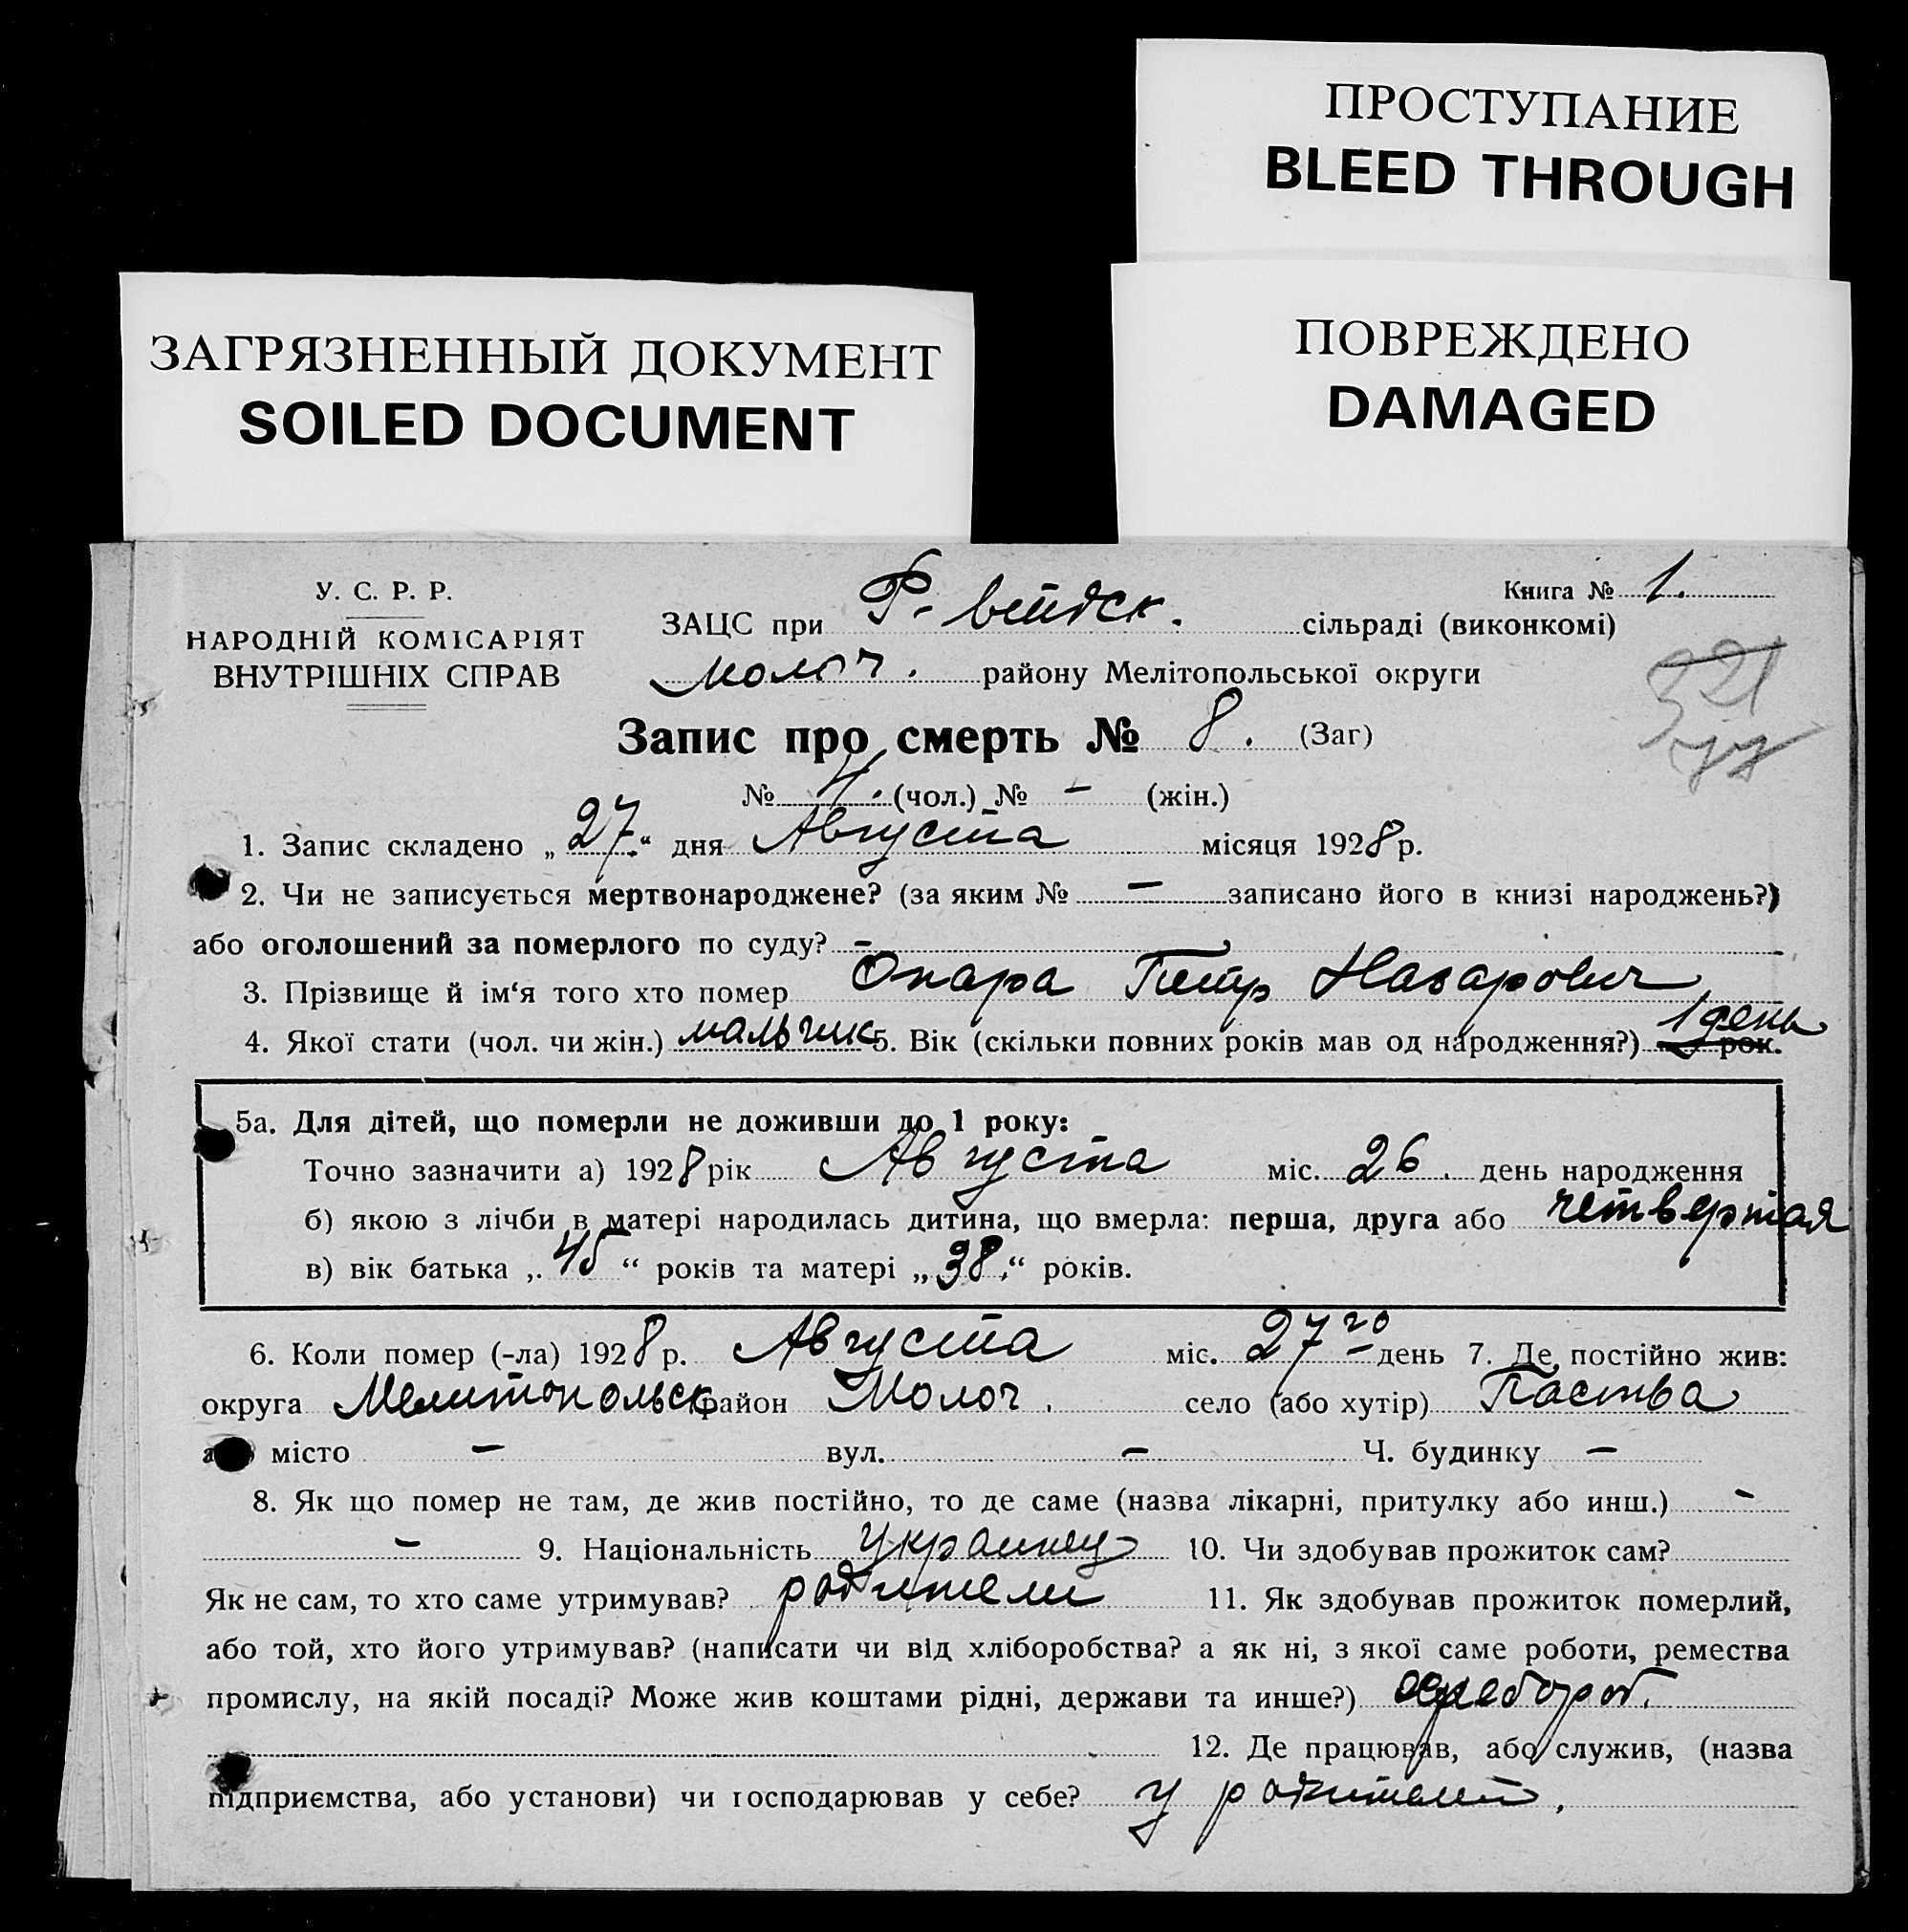 ПРОСТУПАНИЕ
BLEED THROUGH
ЗАГРЯЗНЕННЫЙ ДОКУМЕНТ
SOILED DOCUMENT
ПОВРЕЖДЕНО
DAMAGED
У. С. Р. Р.
НАРОДНІЙ КОМІСАРІЯТ
ВНУТРІШНІХ СПРАВ
Книга № 1.
ЗАЦС при Р-вейдск. сільраді (виконкомі)
Молоч. району Мелітопольської округи
321
Запис про смерть № 8. (Заг)
№ 4. (чол.) № - (жін.)
1. Запис складено „27.“ дня Августа місяця 1928 р.
2. Чи не записується мертвонароджене? (за яким № — записано його в книзі народжень?)
або оголошений за померлого по суду? -
3. Прізвище й ім‘я того хто помер Опара Петр Назарович
4. Якої стати (чол. чи жін.) мальчик 5. Вік (скільки повних років мав од народження?) 1 день рок.
5а. Для дітей, що померли не доживши до 1 року:
Точно зазначити а) 1928 рік Августа міс. 26. день народження
б) якою з лічби в матері народилась дитина, що вмерла: перша, друга або четвертая
в) вік батька „45“ років та матері „38.“ років.
6. Коли помер (-ла) 1928 р. Августа міс. 27го день 7. Де постійно жив:
округа Мелитопольск район Молоч. село (або хутір) Паства
або місто — вул. — Ч. будинку —
8. Як що помер не там, де жив постійно, то де саме (назва лікарні, притулку або инш.) -
- 9. Національність украинец 10. Чи здобував прожиток сам?
Як не сам, то хто саме утримував? родители 11. Як здобував прожиток померлий,
або той, хто його утримував? (написати чи від хліборобства? а як ні, з якої саме роботи, ремества
промислу, на якій посаді? Може жив коштами рідні, держави та инше?)
12. Де працював, або служив, (назва
підприємства, або установи) чи господарював у себе? у родителей.